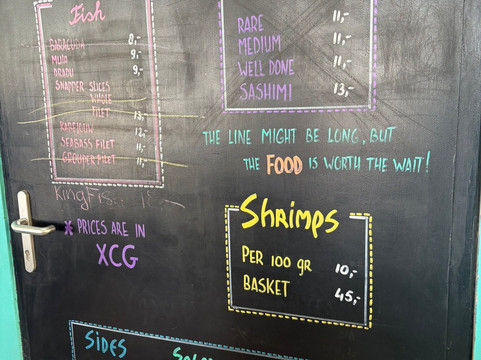 Fish
BARACUDA 8,-
MULA 9,-
DRADU 9,-
SNAPPER SLICES
WHOLE
FILET 13,-
KAREKO 12,-
SEABASS FILET 11,-
GROUPER FILET 11,-
KingFis
* PRICES ARE IN
XCG
RARE 11,-
MEDIUM 11,-
WELL DONE 11,-
SASHIMI 13,-
THE LINE MIGHT BE LONG, BUT
THE FOOD IS WORTH THE WAIT!
Shrimps
PER 100 gr 10,-
BASKET 45,-
SIDES